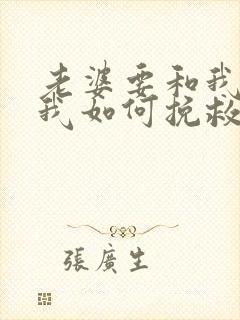 老婆要和我
我如何挽救
張廣生